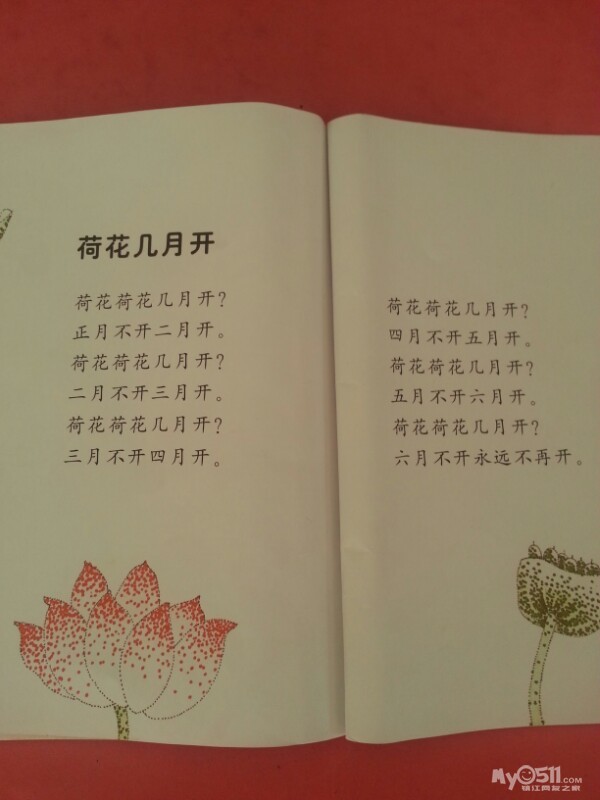 荷花几月开
荷花荷花几月开?
正月不开二月开。
荷花荷花几月开?
二月不开三月开。
荷花荷花几月开?
三月不开四月开。
荷花荷花几月开?
四月不开五月开。
荷花荷花几月开?
五月不开六月开。
荷花荷花几月开?
六月不开永远不再开。
My0511.com
镇江网友之家